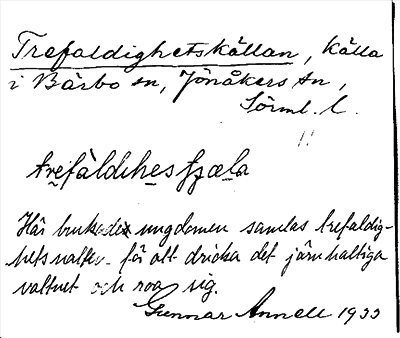 Trefaldighetskällan, källa
i Bärbo sn, Jönåkers hd,
Sörml. l.
trefàldihesҫæla
Här brukade ungdomen samlas trefaldig-
hetsnatten för att dricka det järnhaltiga
vattnet och roa sig.
Gunnar Annell 1933